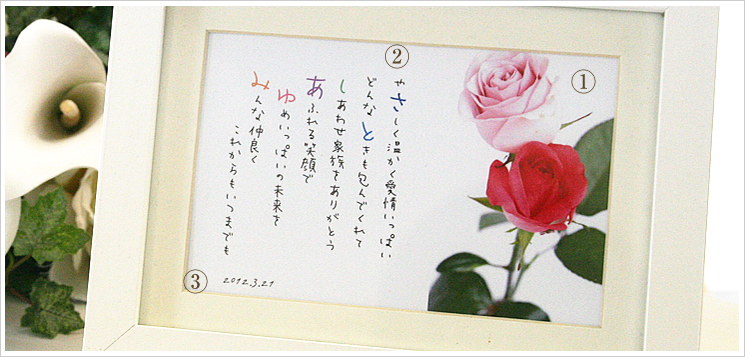 やさしく温かく愛情いっぱい
どんなときも包んでくれて
しあわせ家族をありがとう
あふれる笑顔で
ゆめいっぱいの未来を
みんな仲良く
これからもいつまでも
2012.3.21
①
②
③